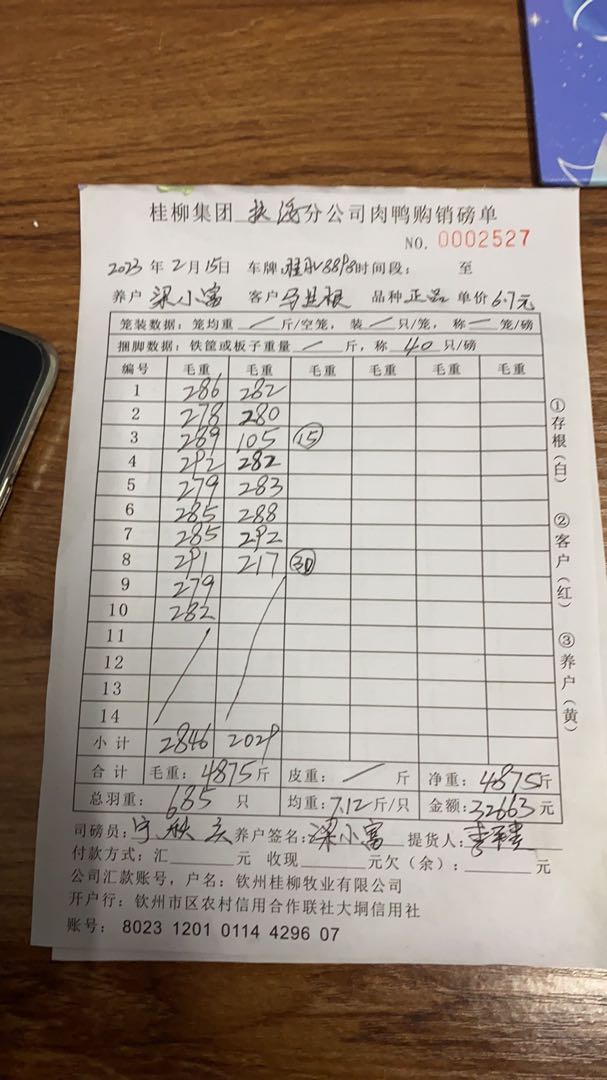 桂柳集团 分公司肉鸭购销磅单
NO. 0002527
2023 年 2 月 15日 车牌: 8898 时间段: 至
养户 梁小富 客户 品种 正品 单价 6.7元
笼装数据: 笼均重 / 斤/空笼, 装 / 只/笼, 称 / 笼/磅
捆脚数据: 铁筐或板子重量 / 斤, 称 40 只/磅
编号 毛重 毛重 毛重 毛重 毛重 毛重
1 286 282
2 278 280
3 289 105 ⑮
4 292 282
5 279 283
6 285 288
7 285 292
8 291 217 ㉚
9 279
10 282
11
12
13
14
小计 2846 2029
合计 毛重: 4875斤 皮重: / 斤 净重: 4875斤
总羽重: 685 只 均重: 7.12斤/只 金额: 32663元
司磅员: 养户签名: 梁小富 提货人:
付款方式: 汇 元 收现 元欠(余): 元
公司汇款账号, 户名: 钦州桂柳牧业有限公司
开户行: 钦州市区农村信用合作联社大垌信用社
账号: 8023 1201 0114 4296 07
①存根(白) ②客户(红) ③养户(黄)